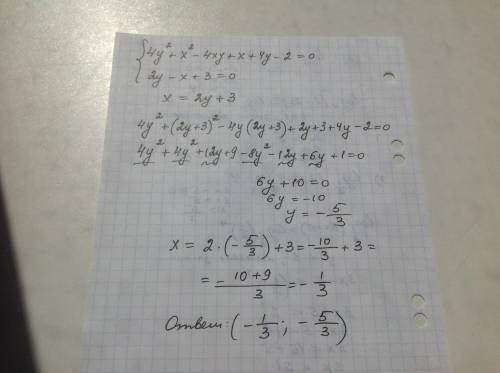 4y² + x² - 4xy + x + 4y - 2 = 0
2y - x + 3 = 0
x = 2y + 3
4y² + (2y+3)² - 4y(2y+3) + 2y + 3 + 4y - 2 = 0
4y² + 4y² + 12y + 9 - 8y² - 12y + 6y + 1 = 0
6y + 10 = 0
6y = -10
y = - 5/3
x = 2 · (- 5/3) + 3 = - 10/3 + 3 =
= (- 10 + 9)/3 = - 1/3
Ответ: (- 1/3 ; - 5/3)